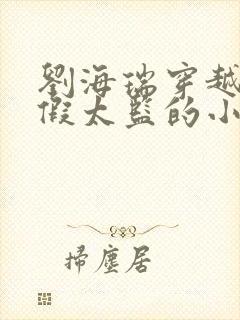 劉海瑞穿越
假太監的小
掃塵居